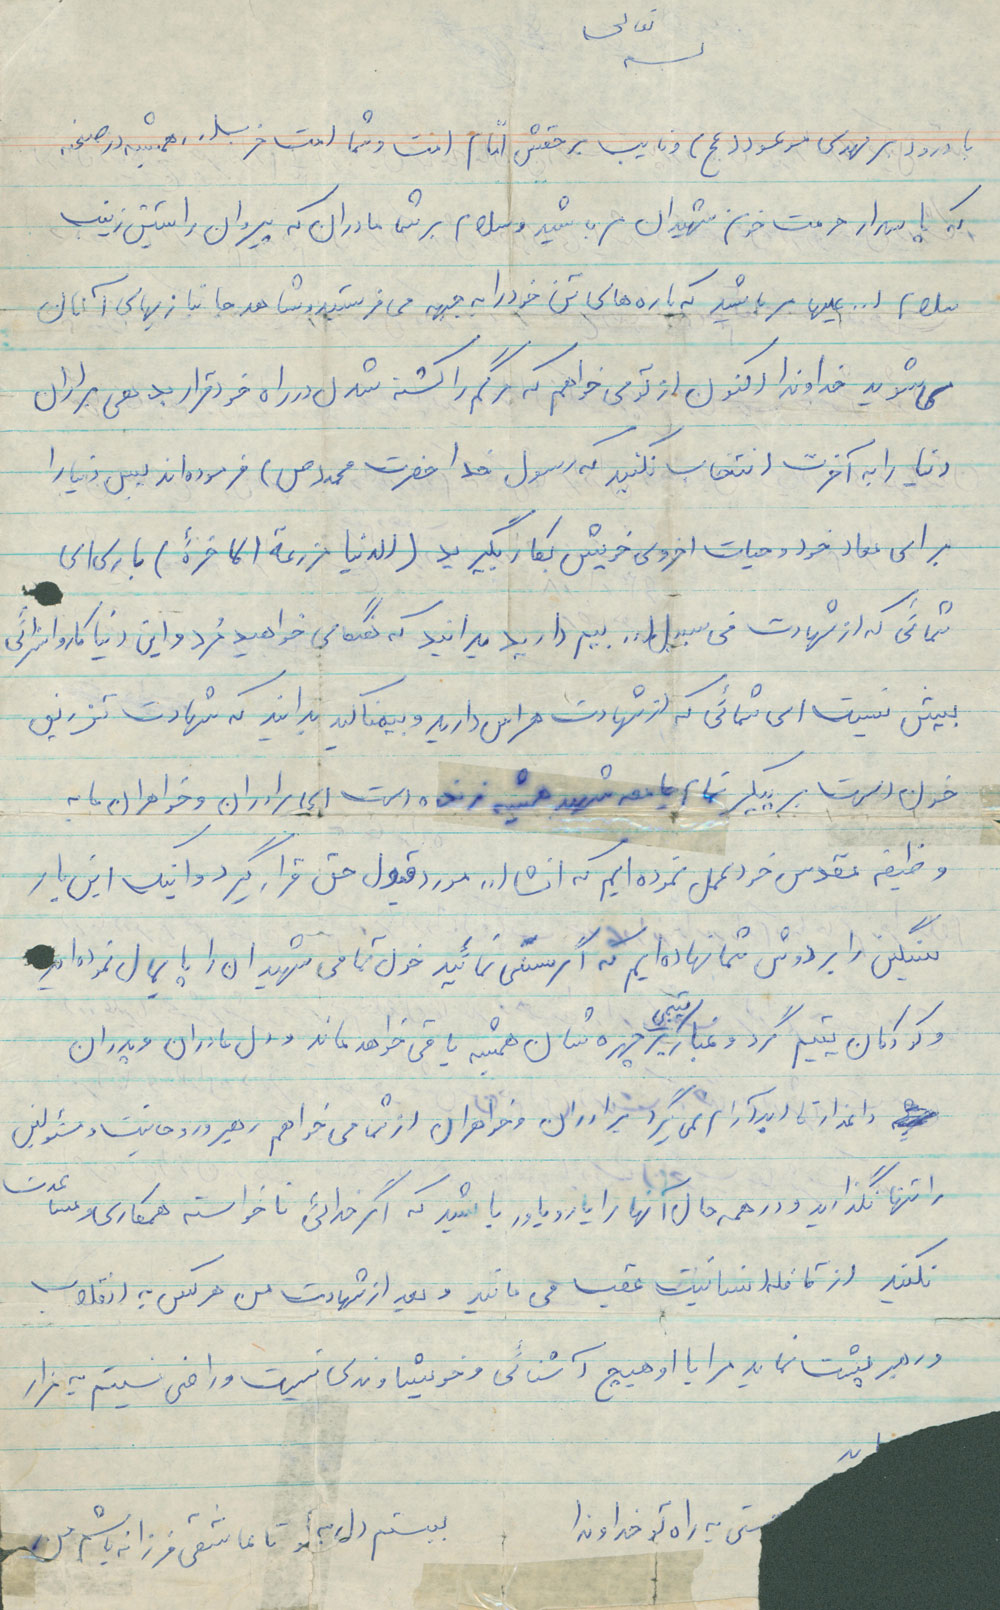 بسمه تعالی
با درود بر مهدی موعود (عج) و نایب برحقش امام امت و شما امت همیشه در صحنه
که پاسدار حرمت خون شهیدان می باشید و سلام بر شما مادران که پیروان راستین زینب
سلام ا... علیها می باشید که پاره های تن خود را به جبهه می فرستید و شاهد جانبازیهای آنان
می شوید خداوندا اکنون از تو می خواهم که مرگم را کشته شدن در راه خود قرار بدهی برادران
دنیا را به آخرت انتخاب نکنید که رسول خدا حضرت محمد (ص) فرموده اند پس دنیا را
برای معاد خود و حیات اخروی خویش بکار بگیرید (الدنیا مزرعة الاخرة) باری ای
شمائی که از شهادت فی سبیل ا... بیم دارید بدانید که هنگامی خواهید مرد و این دنیا کاروانسرائی
بیش نیست ای شمائی که از شهادت هراس دارید و بیمناکید بدانید که شهادت تزریق
خون است بر پیکر تمام جامعه شهید همیشه زنده است ای برادران و خواهران ما به
وظیفه مقدس خود عمل نموده ایم که انشاا... مورد قبول حق قرار گیرد و اینک این بار
سنگین را بر دوش شما نهاده ایم که اگر سستی نمائید خون تمامی شهیدان را پایمال نموده اید
و کودکان یتیم گرد و غبار یتیمی بر چهره شان همیشه باقی خواهد ماند و دل مادران و پدران
داغدار تا ابد آرام نمی گیرد برادران و خواهران از شما می خواهم رهبر و روحانیت و مسئولین
را تنها نگذارید و در همه حال آنها را یار و یاور باشید که اگر خدائی ناخواسته همکاری و مساعدت
نکنید از قافله انسانیت عقب می مانید و بعد از شهادت من هر کس به انقلاب
و رهبر پشت نماید مرا با او هیچ آشنائی و خویشاوندی نیست و راضی نیستم به مزار
به راه تو خداوندا
ببستم دل به تو تا عاشقی فرزانه باشم من